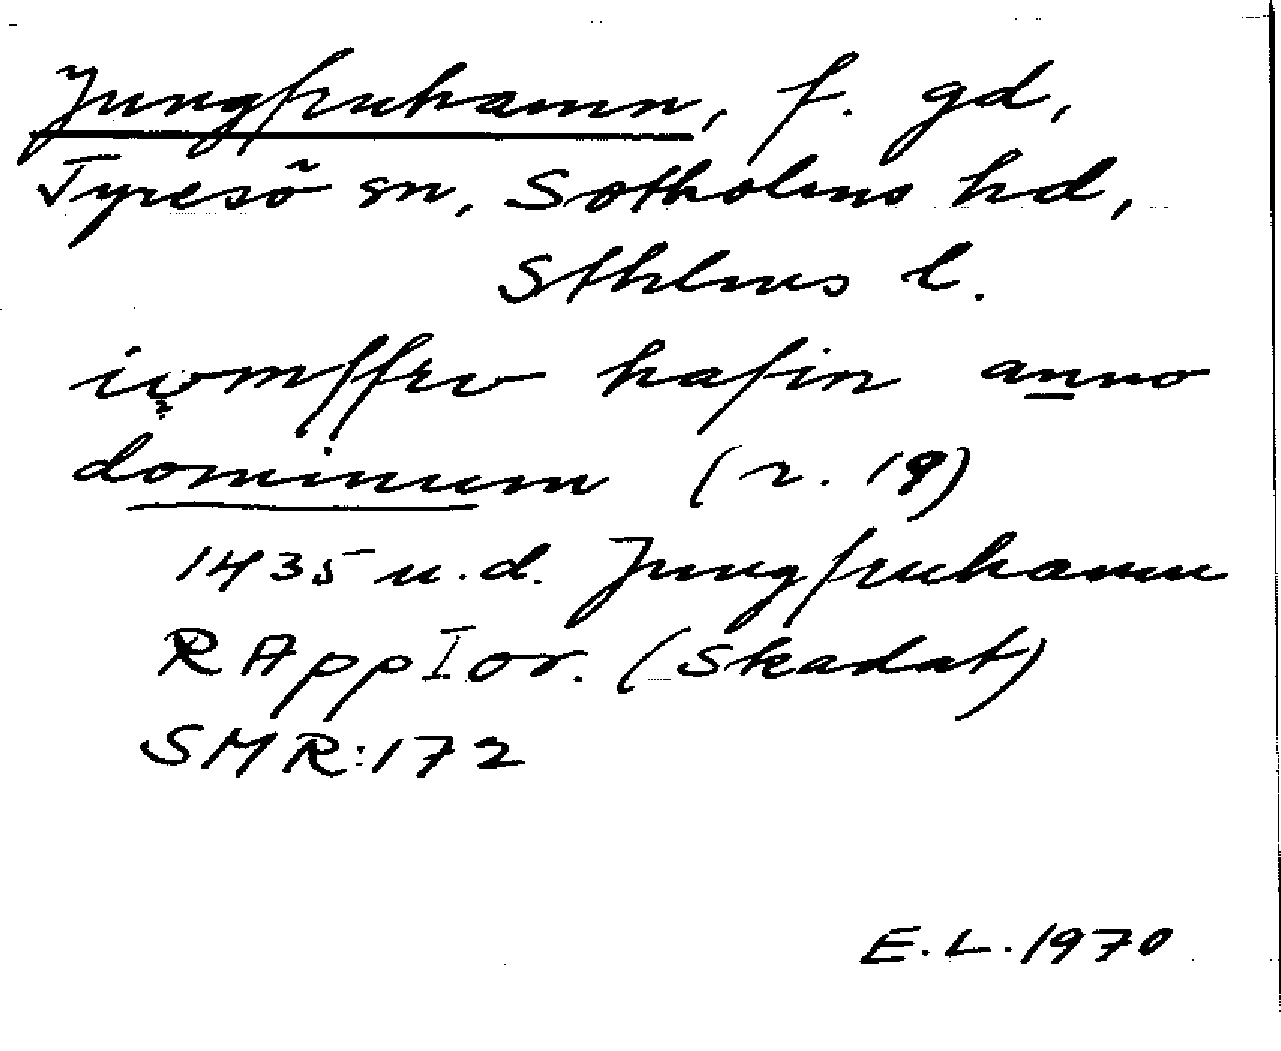 Jungfruhamn, f. gd,
Tyresö sn, Sotholms hd,
Sthlms l.
iomffrv hafin anno
dominum (r. 19)
1435 u.d. Jungfruhamn
RAppI or. (Skadat)
SMR:172
E.L.1970